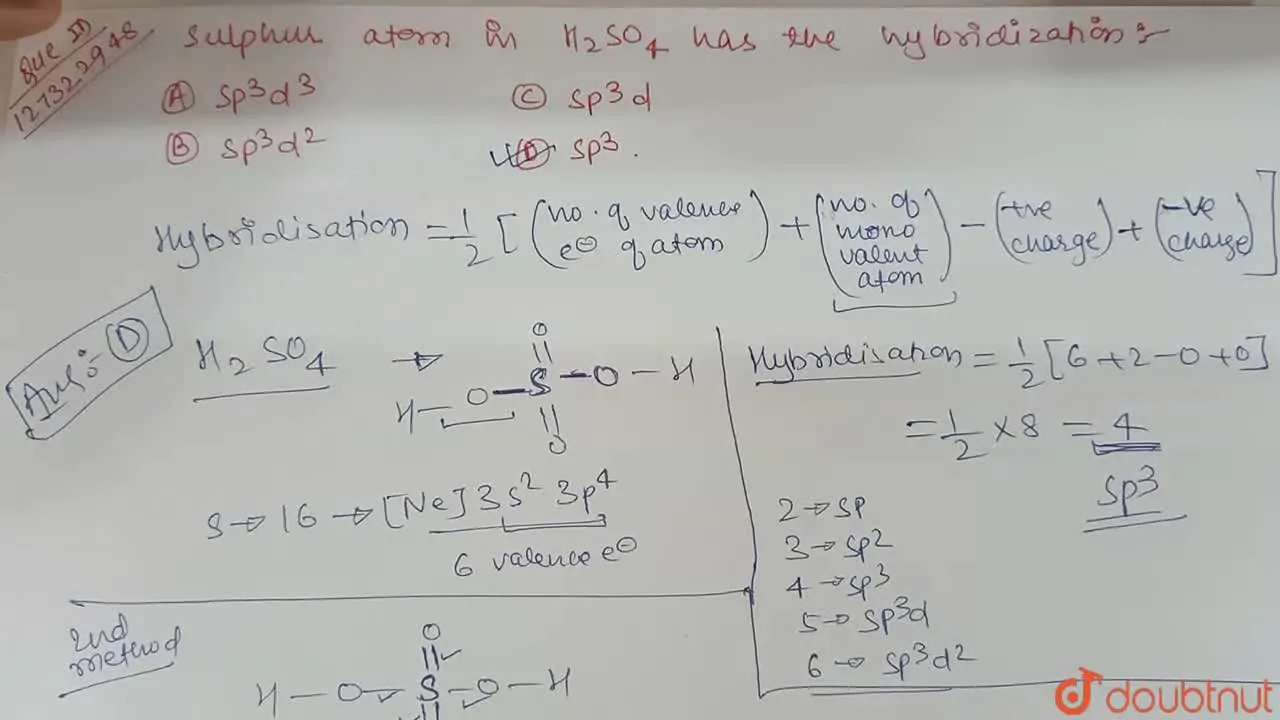 Que ID
127322948
Sulphur atom in H₂SO₄ has the hybridization:-
(A) sp³d³ (C) sp³d
(B) sp³d² (D) sp³.
Hybridisation = 1/2 [(no. of valence e⊖ of atom) + (no. of mono valent atom) - (+ve charge) + (-ve charge)]
Ans:- (D)
H₂SO₄ →
O
||
H-O-S-O-H
||
O
S → 16 → [Ne] 3s² 3p⁴
6 valence e⊖
Hybridisation = 1/2 [6+2-0+0]
= 1/2 × 8 = 4
sp³
2 → sp
3 → sp2
4 → sp³
5 → sp³d
6 → sp³d²
2nd
method
O
||
H-O-S-O-H
||
doubtnut